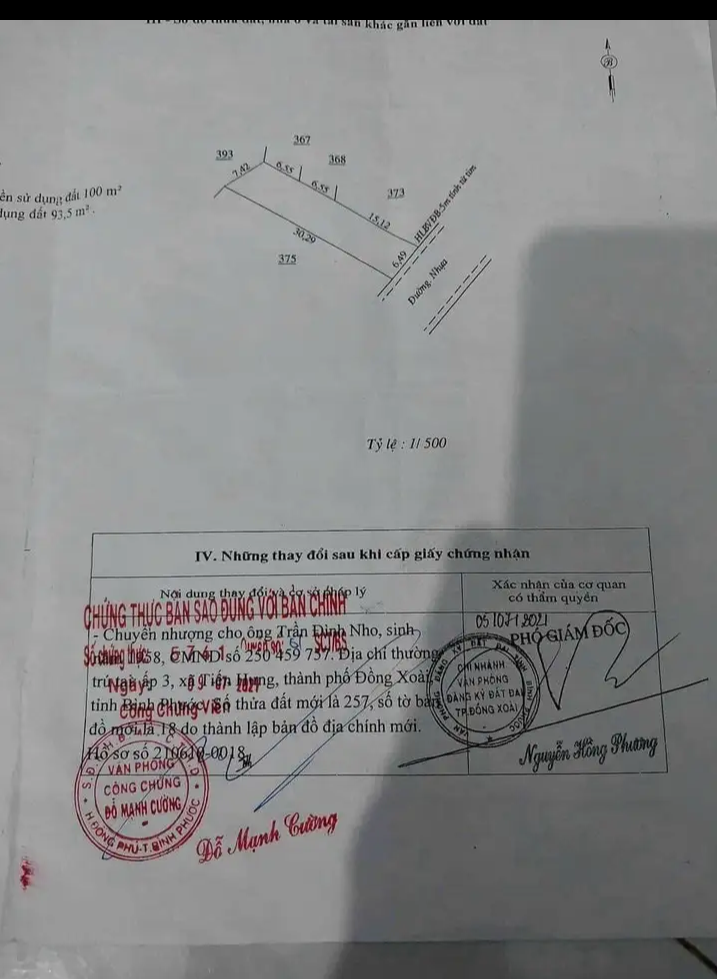 III - Sơ đồ thửa đất, nhà ở và tài sản khác gắn liền với đất
B
ền sử dụng đất 100 m²
dụng đất 93,5 m².
393
367
368
373
375
7,42
6,55
6,55
15,12
30,29
6,49
HLBVĐB 5m tính từ tim
Đường Nhựa
Tỷ lệ : 1/ 500
IV. Những thay đổi sau khi cấp giấy chứng nhận
Nội dung thay đổi và cơ sở pháp lý
Xác nhận của cơ quan
có thẩm quyền
CHỨNG THỰC BẢN SAO ĐÚNG VỚI BẢN CHÍNH
- Chuyển nhượng cho ông Trần Đình Nho, sinh
1958, CMND số 250 459 757. Địa chỉ thường
trú tại ấp 3, xã Tiến Hưng, thành phố Đồng Xoài,
tỉnh Bình Phước. Số thửa đất mới là 257, số tờ bản
đồ mới là 18 do thành lập bản đồ địa chính mới.
Hồ sơ số 210610-0018
Số chứng thực 5761 Quyển số 01 SCT/BS
Ngày 09-07-2021
Công Chứng Viên
VĂN PHÒNG
CÔNG CHỨNG
ĐỖ MẠNH CƯỜNG
H.ĐỒNG PHÚ-T.BÌNH PHƯỚC
Đỗ Mạnh Cường
05/07/2021
PHÓ GIÁM ĐỐC
VĂN PHÒNG ĐĂNG KÝ ĐẤT ĐAI TỈNH BÌNH PHƯỚC
CHI NHÁNH
VĂN PHÒNG
ĐĂNG KÝ ĐẤT ĐAI
TP.ĐỒNG XOÀI
Nguyễn Hồng Phương